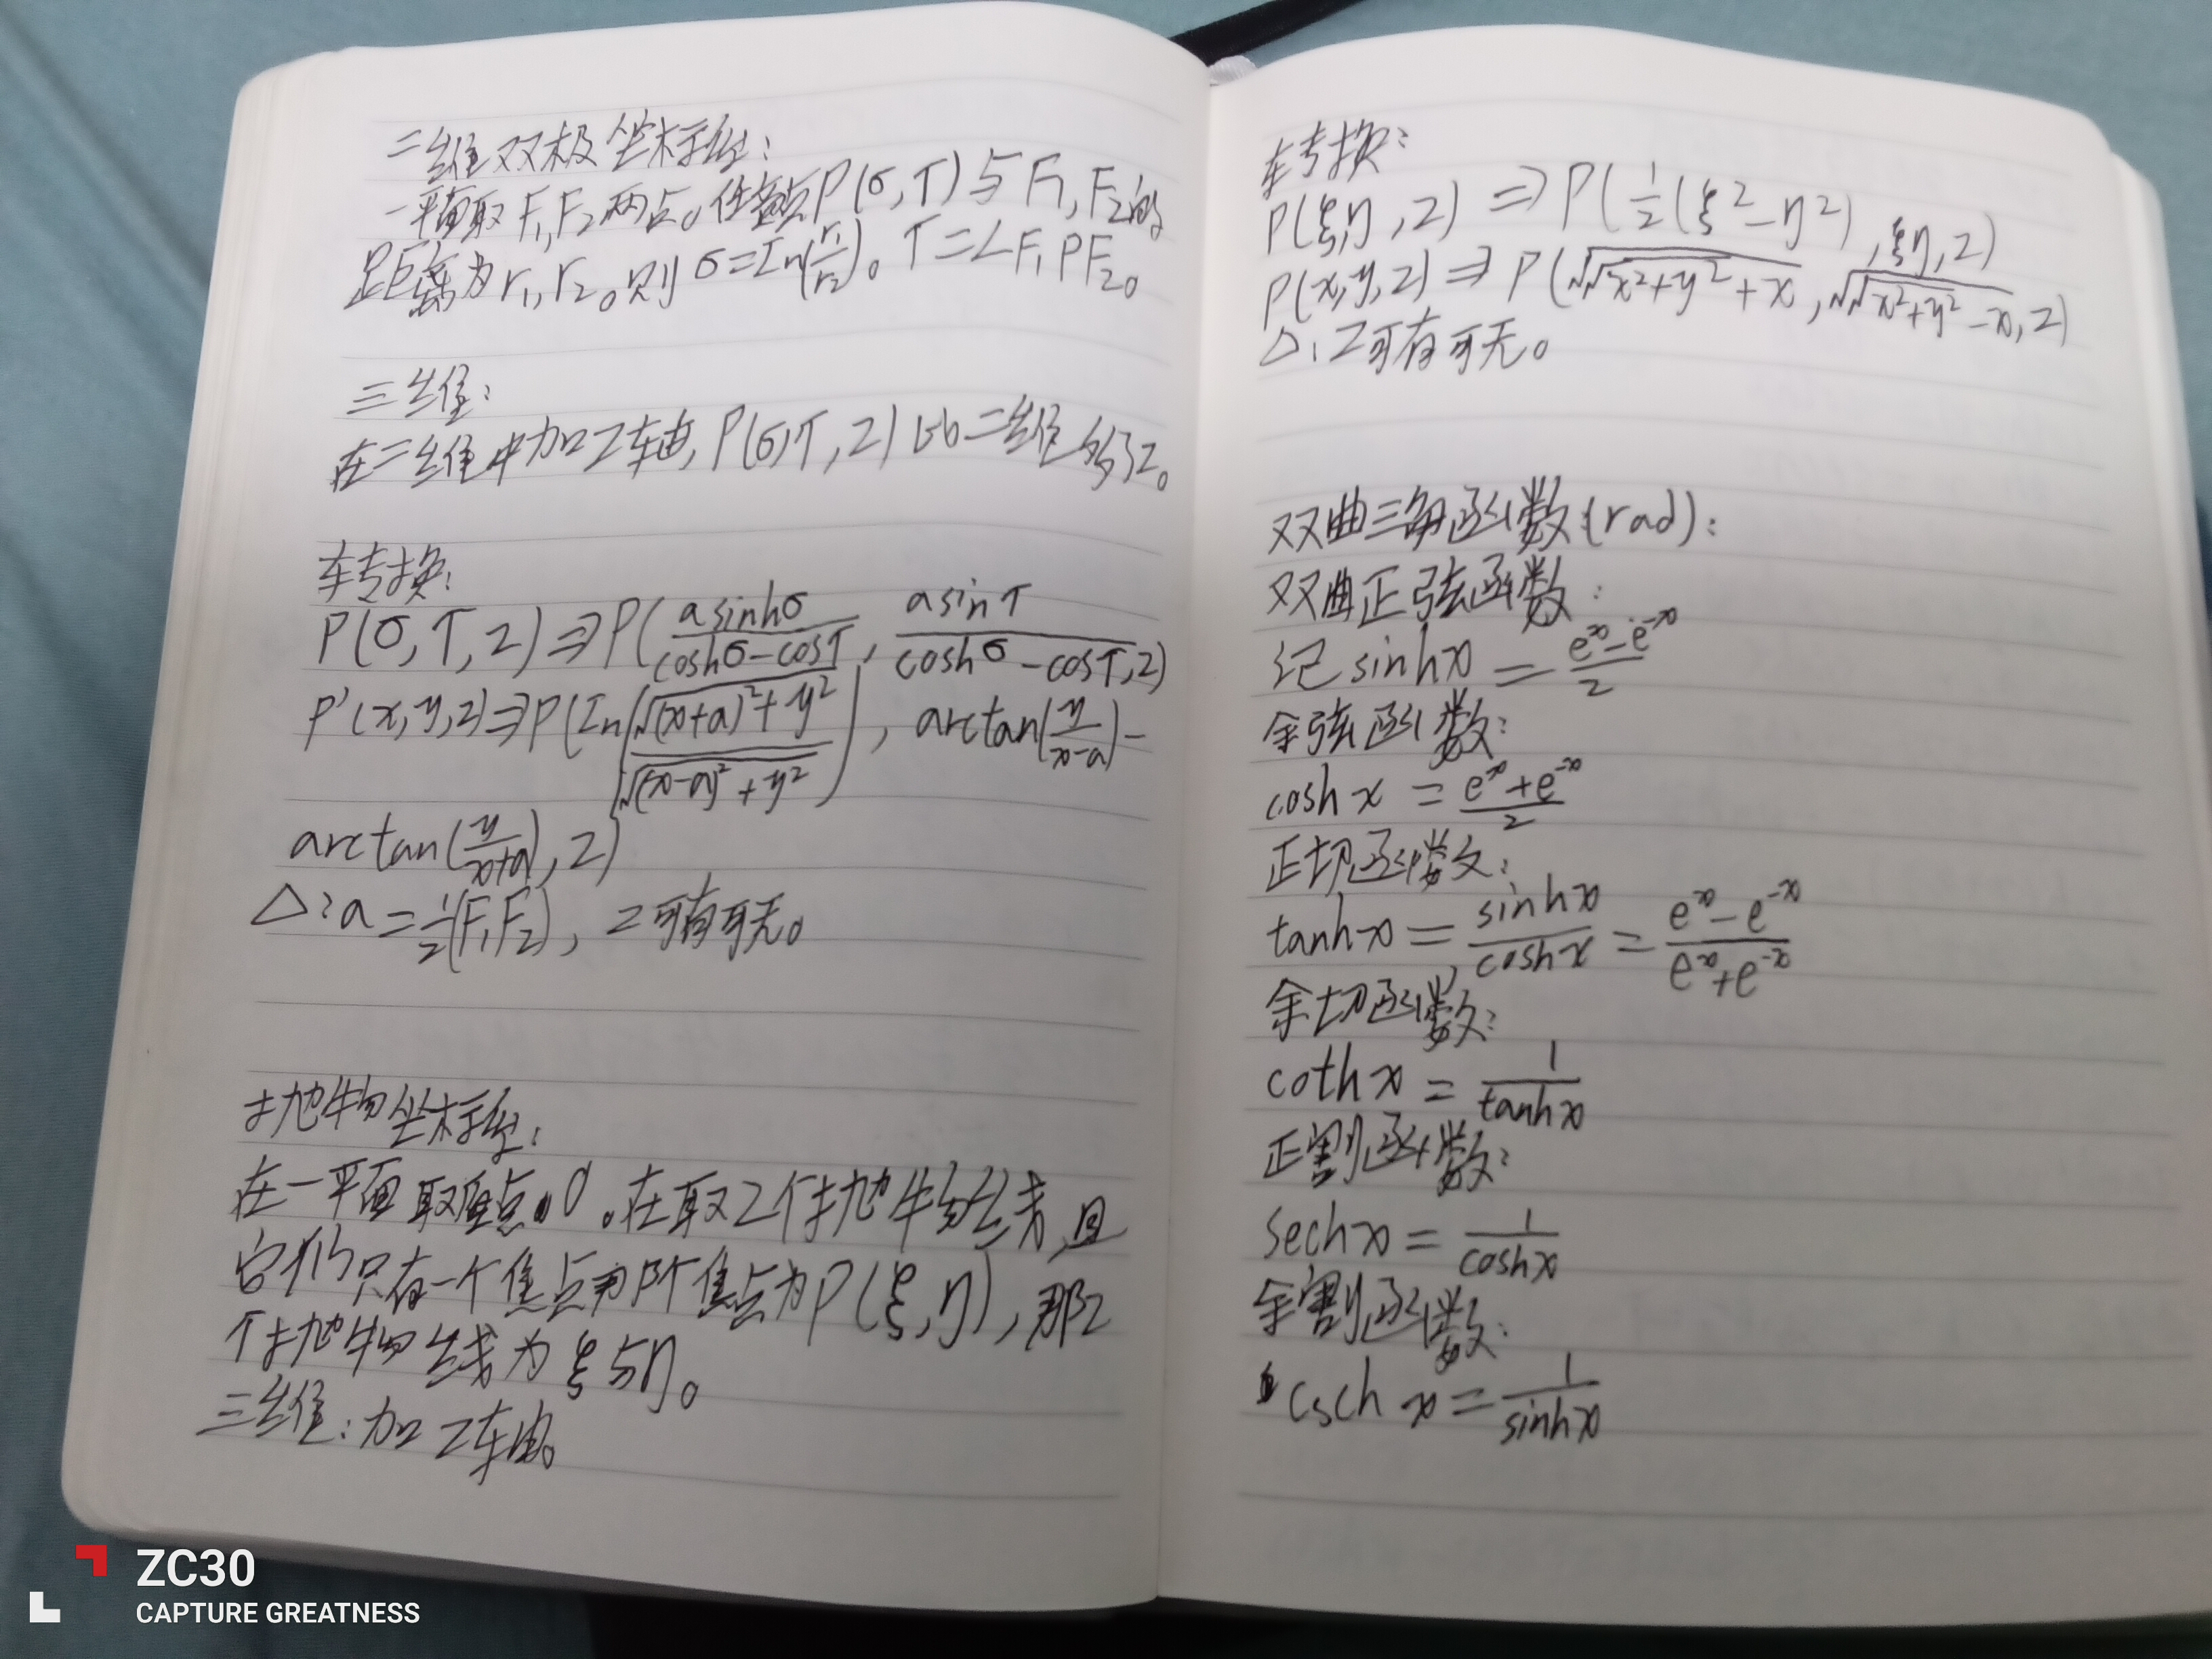 二维双极坐标系:
一平面取F₁,F₂两点。任意点P(σ,τ)与F₁,F₂的
距离为r₁,r₂。则σ=In(r₁/r₂)。τ=∠F₁PF₂。
三维:
在二维中加Z轴,P(σ,τ,z)比二维多了z。
转换:
P(σ,τ,z)⇒P(asinhσ/(coshσ-cosτ), asinτ/(coshσ-cosτ),z)
P'(x,y,z)⇒P(In(√((x+a)²+y²)/√((x-a)²+y²)), arctan(y/(x-a))-
arctan(y/(x+a)),z)
△:a=½(F₁F₂),z可有可无。
抛物坐标系:
在一平面取原点O。在取2个抛物线,且
它们只有一个焦点那个焦点为P(ξ,η),那2
个抛物线为ξ与η。
三维:加Z轴。
转换:
P(ξ,η,z)⇒P(½(ξ²-η²),ξη,z)
P(x,y,z)⇒P(√(√(x²+y²)+x),√(√(x²+y²)-x),z)
△:z可有可无。
双曲三角函数(rad):
双曲正弦函数:
记sinhx=(eˣ-e⁻ˣ)/2
余弦函数:
coshx=(eˣ+e⁻ˣ)/2
正切函数:
tanhx=sinhx/coshx=(eˣ-e⁻ˣ)/(eˣ+e⁻ˣ)
余切函数:
cothx=1/tanhx
正割函数:
sechx=1/coshx
余割函数:
cschx=1/sinhx
ZC30
CAPTURE GREATNESS